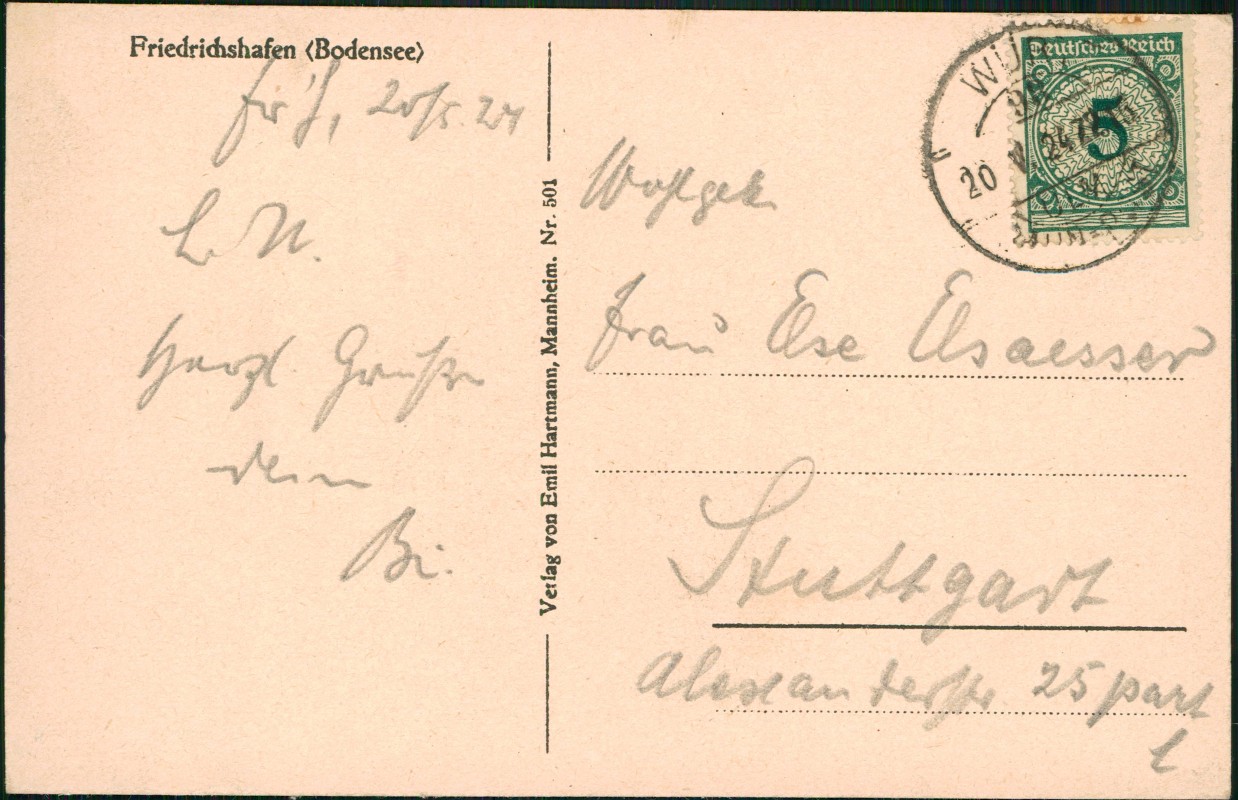 Friedrichshafen (Bodensee)
Fr'h, 20/5.24
L. M.
Herzl Grüße
dein
Bi.
Verlag von Emil Hartmann, Mannheim. Nr. 501
Deutsches Reich
5
20 V. 24 7
Wohlgeb.
Frau Else Elsaesser
Stuttgart
Alexanderstr 25 part
l